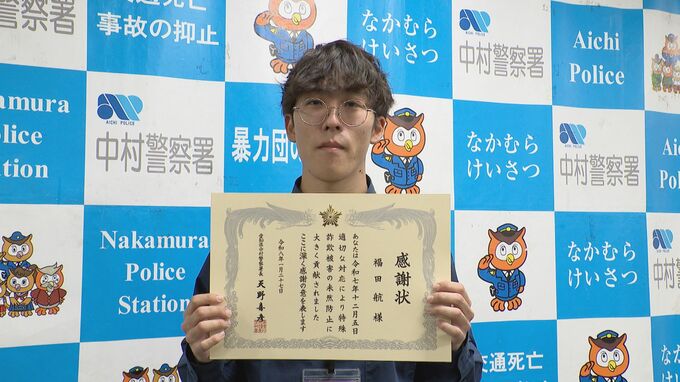 交通死亡
事故の抑止
なかむら
けいさつ
AICHI POLICE
中村警察署
Aichi
Police
Nakamura
Police
Station
AICHI POLICE
中村警察署
暴力団の
なかむら
けいさつ
中村警察署
Aichi
Police
Nakamura
Police
Station
中村警察署
交通死亡
感謝状
福田 航 様
あなたは令和七年十二月五日
適切な対応により特殊
詐欺被害の未然防止に
大きく貢献されました
ここに深く感謝の意を表します
令和八年一月二十七日
愛知県中村警察署長 天野喜彦